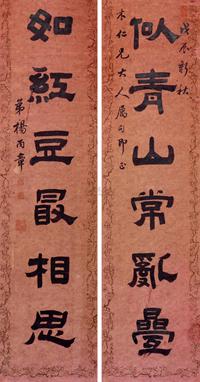 戊辰新秋
似青山常亂疊
木仁兄大人属句即正
如紅豆最相思
弟楊丙章